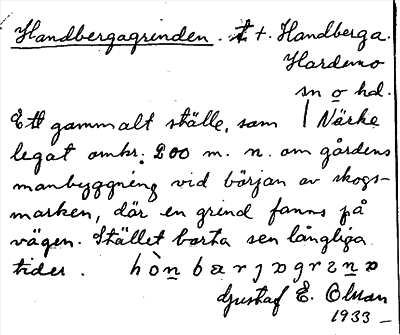 Handbergagrinden. t. Handberga.
Hardemo
sn o hd.
Närke
Ett gammalt ställe, som
legat omkr. 200 m. n. om gårdens
manbyggning vid början av skogs-
marken, där en grind fanns på
vägen. Stället borta sen långliga
tider.
Gustaf E. Olsson
1933 –